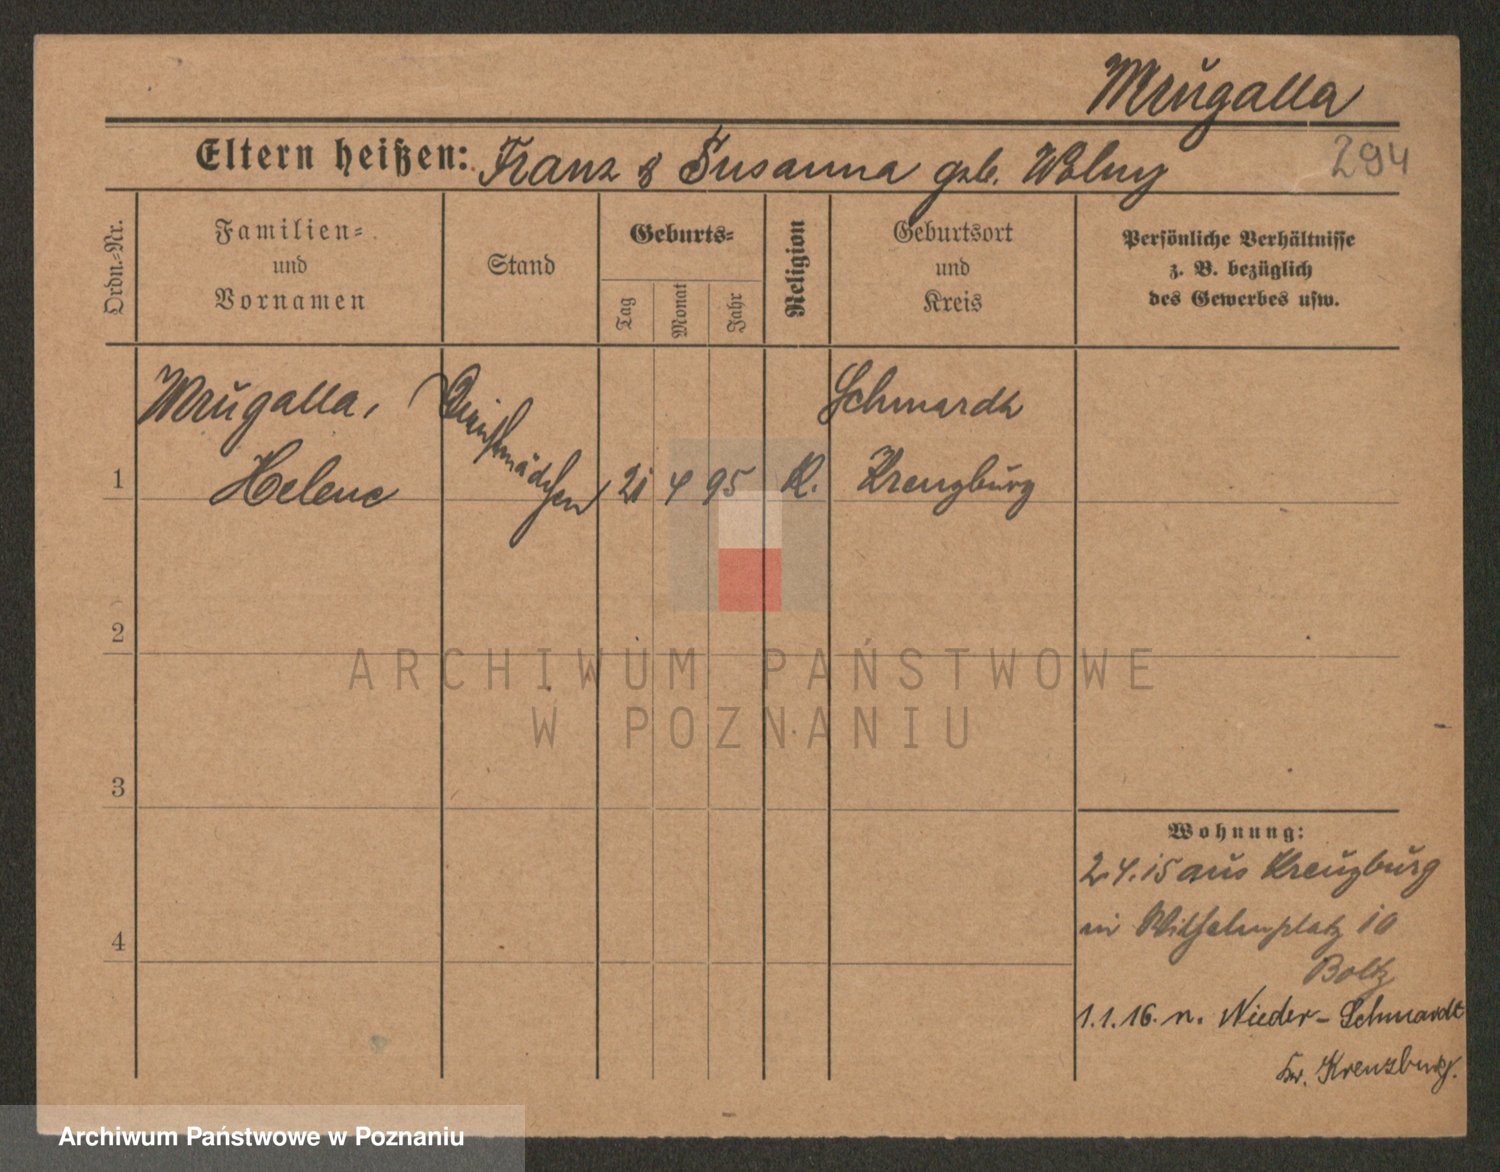 Mrŭgalla
Eltern heißen: Franz & Susanna geb. Wolny
294
Ordn.-Nr.
Familien-
und
Vornamen
Stand
Geburts-
Tag
Monat
Jahr
Religion
Geburtsort
und
Kreis
Persönliche Verhältnisse
z. B. bezüglich
des Gewerbes usw.
1
Mrŭgalla,
Helene
Dienstmädchen
21 4 95
K.
Schmardt
Kreuzbŭrg
2
3
4
Wohnung:
2.4.15 aus Kreuzbŭrg
in Wilhelmplatz 10
Boltz
1.1.16. n. Nieder-Schmardt
Kr. Kreuzburg.
ARCHIWUM PAŃSTWOWE
W POZNANIU
Archiwum Państwowe w Poznaniu